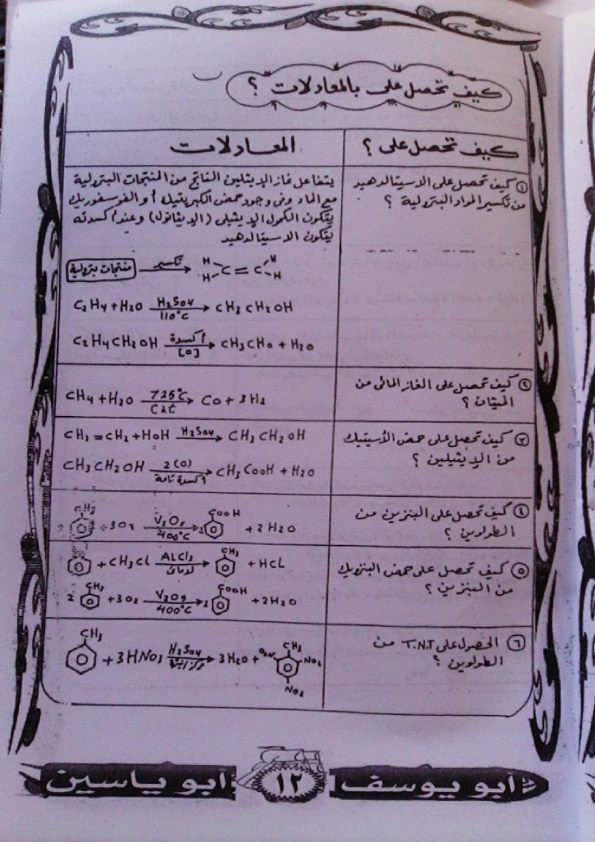 كيف تحصل على بالمعادلات ؟
كيف تحصل على ؟
المعادلات
① كيف تحصل على الاسيتالدهيد
من تكسير المواد البترولية ؟
يتفاعل غاز الإيثلين الناتج من المنتجات البترولية
مع الماء وفى وجود حمض الكبريتيك أو الفوسفوريك
يتكون الكحول الإيثيلى (الإيثانول) وعند أكسدته
يتكون الاسيتالدهيد
منتجات بترولية تكسير H H C = C H H
C2H4 + H2O H2SO4 110°C CH3 CH2OH
C2H4CH2OH أكسدة [O] CH3CHO + H2O
② كيف تحصل على الغاز المائى من
الميثان ؟
CH4 + H2O 725°C Cat CO + 3H2
③ كيف تحصل على حمض الأسيتيك
من الإيثيلين ؟
CH2 = CH2 + HOH H2SO4 CH3 CH2OH
CH3CH2OH 2(O) أكسدة تامة CH3COOH + H2O
④ كيف تحصل على البنزين من
الطولوين ؟
CH3 + 3O2 V2O5 400°C 2 COOH + 2H2O
⑤ كيف تحصل على حمض البنزويك
من البنزين ؟
+ CH3Cl ALCl3 CH3 + HCL
2 CH3 + 3O2 V2O5 400°C 2 COOH + 2H2O
⑥ الحصول على T.N.T من
الطولوين ؟
CH3 + 3HNO3 H2SO4 3H2O + O2N CH3 NO2 NO2
أبو يوسف ١٢ أبو ياسين